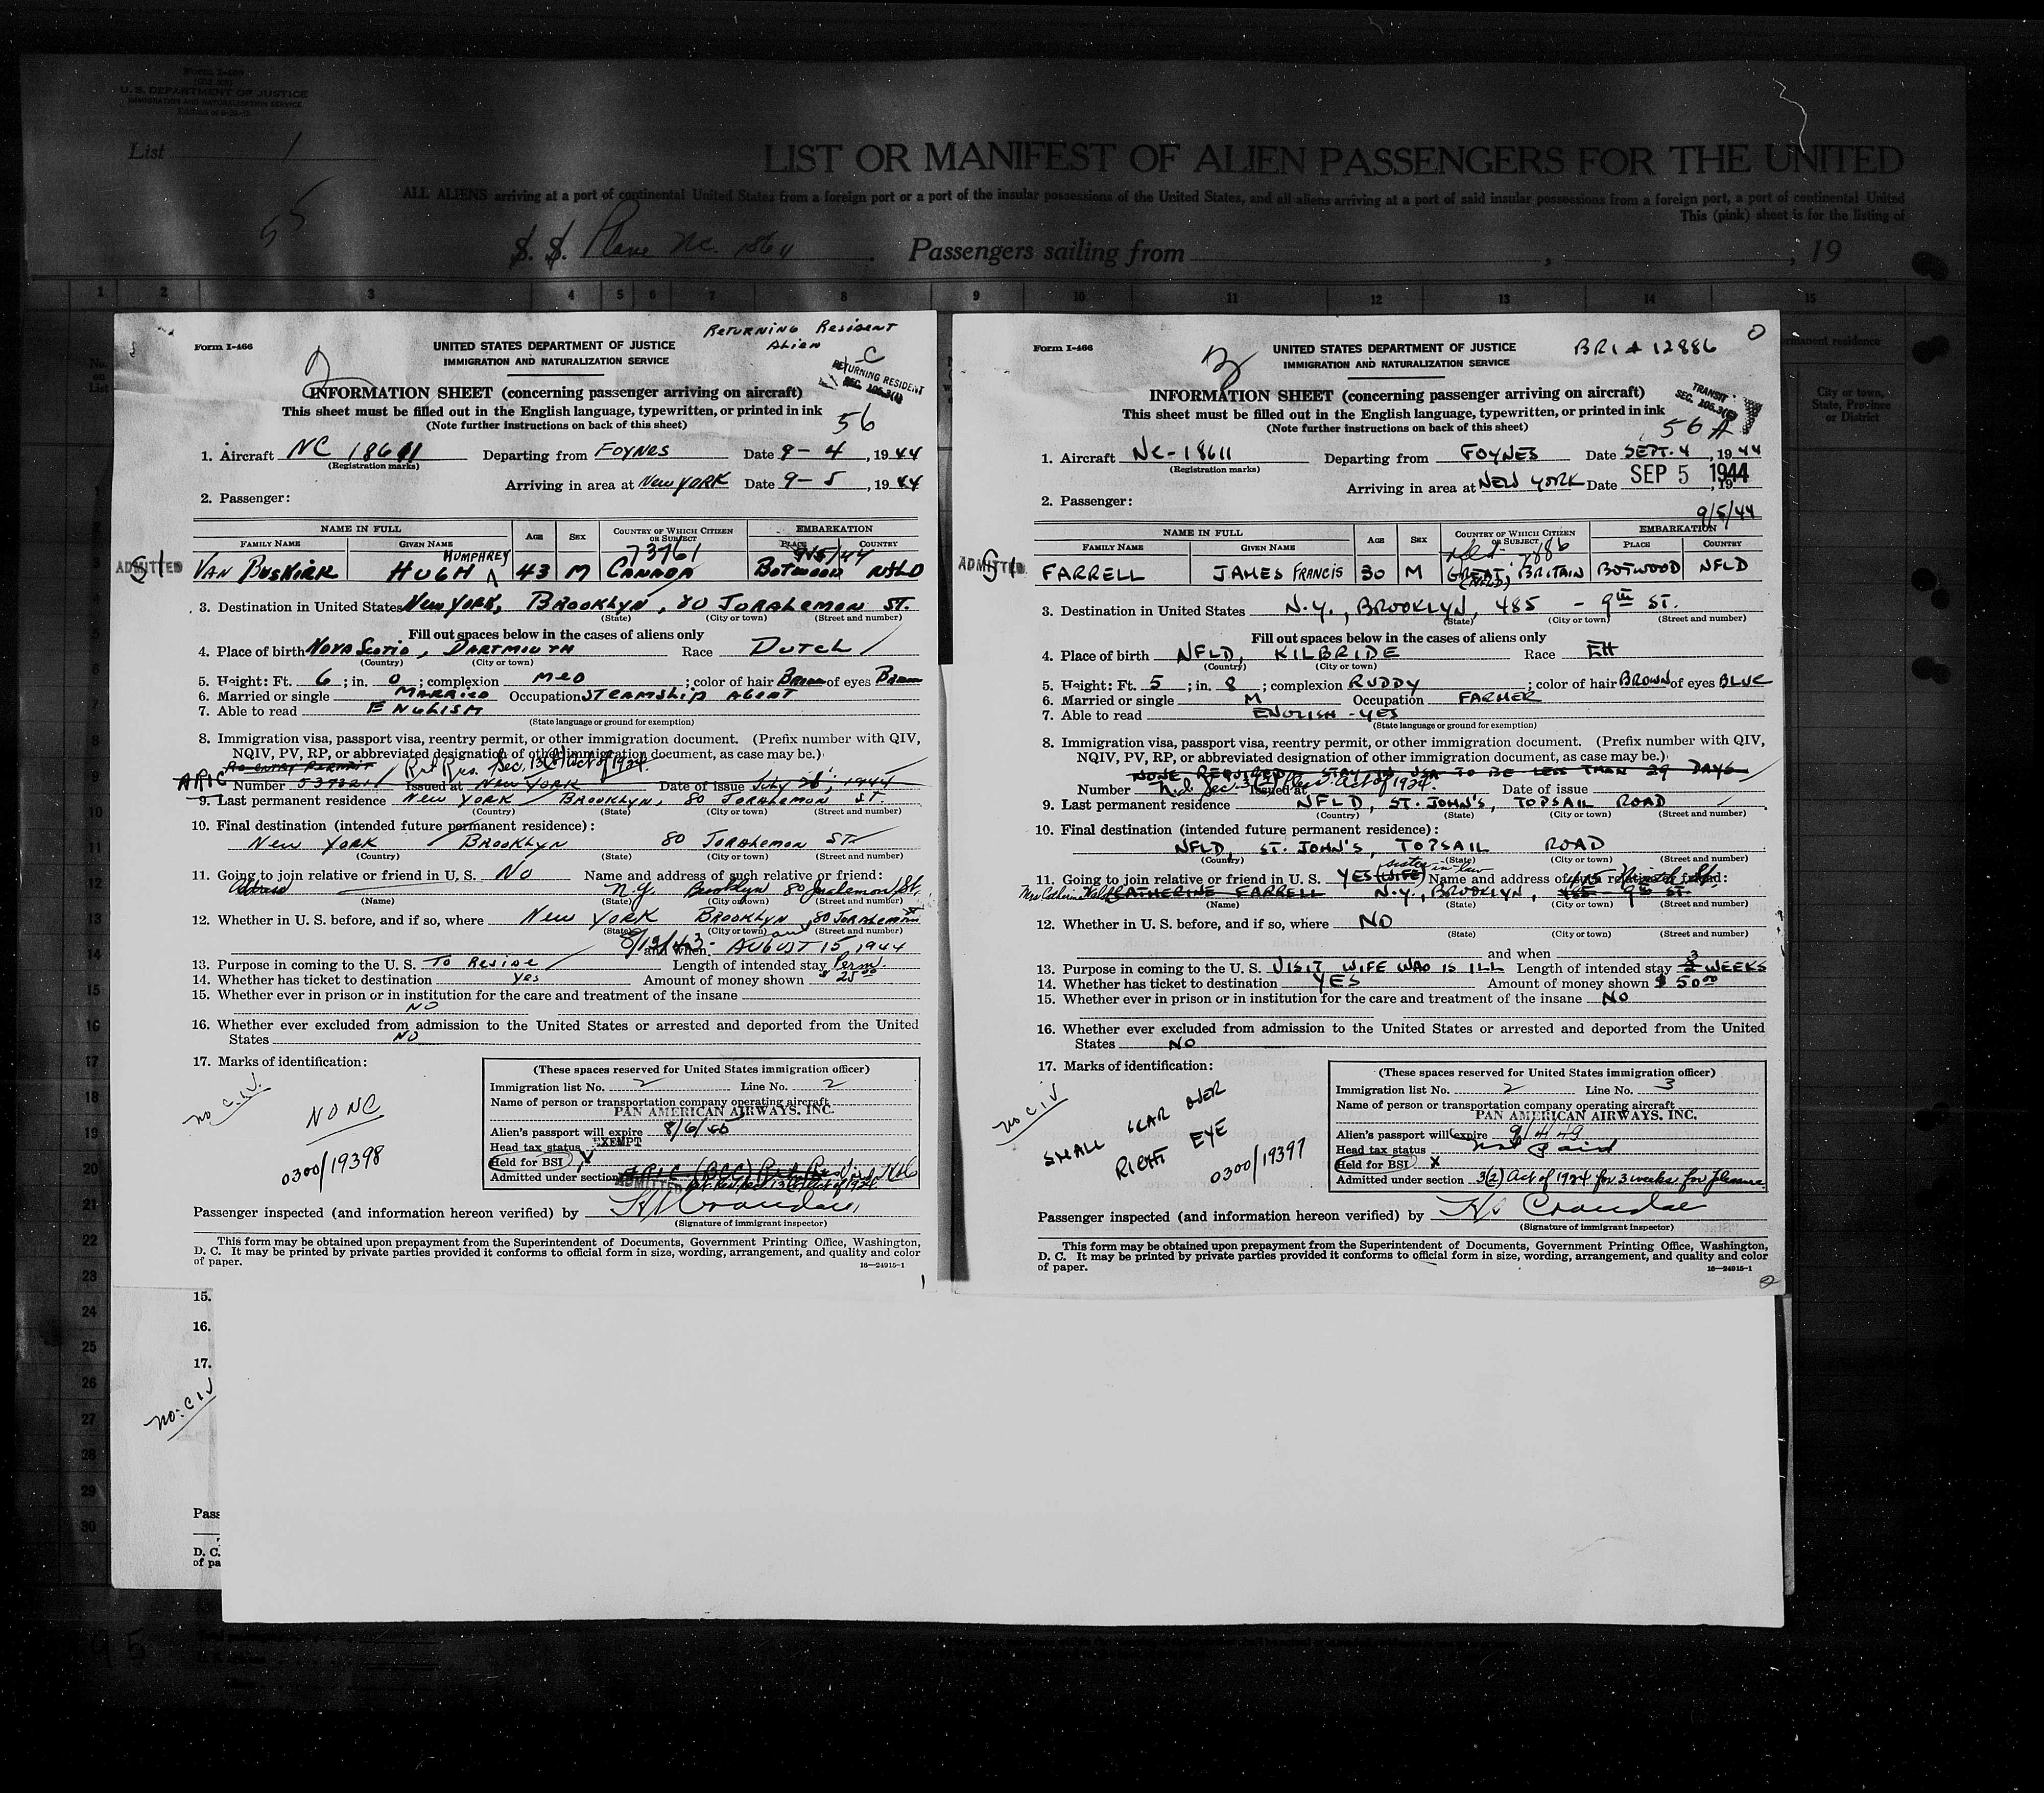 Form I-466
U. S. DEPARTMENT OF JUSTICE
IMMIGRATION AND NATURALIZATION SERVICE
List 1
LIST OR MANIFEST OF ALIEN PASSENGERS FOR THE UNITED
ALL ALIENS arriving at a port of continental United States from a foreign port or a port of the insular possessions of the United States, and all aliens arriving at a port of said insular possessions from a foreign port, a port of continental United
This (pink) sheet is for the listing of
55
S. S. Plane NC. 18611 Passengers sailing from , 19
1 2 3 4 5 6 7 8 9 10 11 12 13 14 15
No. on List
permanent residence
City or town, State, Province or District
Returning Resident
Alien
Form I-466
UNITED STATES DEPARTMENT OF JUSTICE
IMMIGRATION AND NATURALIZATION SERVICE
C
RETURNING RESIDENT
SEC. 105.3(1)
2
INFORMATION SHEET (concerning passenger arriving on aircraft)
This sheet must be filled out in the English language, typewritten, or printed in ink
(Note further instructions on back of this sheet)
56
1. Aircraft NC 18611 Departing from FOYNES Date 9-4, 1944
(Registration marks)
Arriving in area at New York Date 9-5, 1944
2. Passenger:
NAME IN FULL AGE SEX COUNTRY OF WHICH CITIZEN OR SUBJECT EMBARKATION
FAMILY NAME GIVEN NAME PLACE COUNTRY
HUMPHREY 73761 9/5/44
ADMITTED SI VAN BUSKIRK HUGH 43 M CANADA BOTWOOD NFLD
3. Destination in United States New York, BROOKLYN, 80 JORALEMON ST.
(State) (City or town) (Street and number)
Fill out spaces below in the cases of aliens only
4. Place of birth NOVA SCOTIA, DARTMOUTH Race DUTCH
(Country) (City or town)
5. Height: Ft. 6; in. 0; complexion MED; color of hair Brown of eyes Brown
6. Married or single MARRIED Occupation STEAMSHIP AGENT
7. Able to read ENGLISH
(State language or ground for exemption)
8. Immigration visa, passport visa, reentry permit, or other immigration document. (Prefix number with QIV,
NQIV, PV, RP, or abbreviated designation of other immigration document, as case may be.)
RE-ENTRY PERMIT Ret Res. Sec. 13(b) Act of 1924.
ARIC Number Issued at NEW YORK Date of issue July 26, 1944
9. Last permanent residence NEW YORK BROOKLYN, 80 JORALEMON ST.
(Country) (State) (City or town) (Street and number)
10. Final destination (intended future permanent residence):
NEW YORK BROOKLYN 80 JORALEMON ST.
(Country) (State) (City or town) (Street and number)
11. Going to join relative or friend in U. S. NO Name and address of such relative or friend:
N.Y. Brooklyn 80 Joralemon St.
(Name) (State) (City or town) (Street and number)
12. Whether in U. S. before, and if so, where NEW YORK BROOKLYN 80 JORALEMON
(State) (City or town) (Street and number)
8/12/43 - and and when AUGUST 15, 1944
13. Purpose in coming to the U. S. To Reside Length of intended stay Perm.
14. Whether has ticket to destination Yes Amount of money shown $25.00
15. Whether ever in prison or in institution for the care and treatment of the insane
NO
16. Whether ever excluded from admission to the United States or arrested and deported from the United
States NO
17. Marks of identification:
no C.I.V.
NONC
0300/19398
(These spaces reserved for United States immigration officer)
Immigration list No. 2 Line No. 2
Name of person or transportation company operating aircraft
PAN AMERICAN AIRWAYS, INC.
Alien's passport will expire 8/6/45
Head tax status EXEMPT
Held for BSI X
Admitted under section
ADMITTED
Passenger inspected (and information hereon verified) by
(Signature of immigrant inspector)
This form may be obtained upon prepayment from the Superintendent of Documents, Government Printing Office, Washington,
D. C. It may be printed by private parties provided it conforms to official form in size, wording, arrangement, and quality and color
of paper.
16—24915-1
Form I-466
UNITED STATES DEPARTMENT OF JUSTICE
IMMIGRATION AND NATURALIZATION SERVICE
BRI A 12886
TRANSIT
SEC. 105.3(
INFORMATION SHEET (concerning passenger arriving on aircraft)
This sheet must be filled out in the English language, typewritten, or printed in ink
(Note further instructions on back of this sheet)
56 A
1. Aircraft NC-18611 Departing from FOYNES Date SEPT. 4, 1944
(Registration marks)
Arriving in area at NEW YORK Date SEP 5 1944
2. Passenger:
9/5/44
NAME IN FULL AGE SEX COUNTRY OF WHICH CITIZEN OR SUBJECT EMBARKATION
FAMILY NAME GIVEN NAME PLACE COUNTRY
7886
ADMITTED SI FARRELL JAMES FRANCIS 30 M GREAT BRITAIN (NFLD) BOTWOOD NFLD
3. Destination in United States N.Y., BROOKLYN, 485 - 9TH ST.
(State) (City or town) (Street and number)
Fill out spaces below in the cases of aliens only
4. Place of birth NFLD, KILBRIDE Race EH
(Country) (City or town)
5. Height: Ft. 5; in. 8; complexion RUDDY; color of hair BROWN of eyes BLUE
6. Married or single M Occupation FARMER
7. Able to read ENGLISH - YES
(State language or ground for exemption)
8. Immigration visa, passport visa, reentry permit, or other immigration document. (Prefix number with QIV,
NQIV, PV, RP, or abbreviated designation of other immigration document, as case may be.)
NONE REQUIRED STAY IN USA TO BE LESS THAN 29 DAYS
Number n.d. Sec. 3(2) Act of 1924. Issued at Date of issue
9. Last permanent residence NFLD, ST. JOHN'S, TOPSAIL ROAD
(Country) (State) (City or town) (Street and number)
10. Final destination (intended future permanent residence):
NFLD, ST. JOHN'S, TOPSAIL ROAD
(Country) (State) (City or town) (Street and number)
sister in law
11. Going to join relative or friend in U. S. YES (WIFE) Name and address of such relative or friend:
Mrs Catherine Walsh CATHERINE FARRELL N.Y., BROOKLYN, 485 - 9TH ST.
(Name) (State) (City or town) (Street and number)
12. Whether in U. S. before, and if so, where NO
(State) (City or town) (Street and number)
and when
13. Purpose in coming to the U. S. VISIT WIFE WHO IS ILL Length of intended stay 3 WEEKS
14. Whether has ticket to destination YES Amount of money shown $50.00
15. Whether ever in prison or in institution for the care and treatment of the insane NO
16. Whether ever excluded from admission to the United States or arrested and deported from the United
States NO
17. Marks of identification:
no CIV
SMALL SCAR OVER
RIGHT EYE
0300/19397
(These spaces reserved for United States immigration officer)
Immigration list No. 2 Line No. 3
Name of person or transportation company operating aircraft
PAN AMERICAN AIRWAYS, INC.
Alien's passport will expire 9/4/49
Head tax status not paid
Held for BSI X
Admitted under section 3(2) Act of 1924 for 3 weeks for pleasure
Passenger inspected (and information hereon verified) by
(Signature of immigrant inspector)
This form may be obtained upon prepayment from the Superintendent of Documents, Government Printing Office, Washington,
D. C. It may be printed by private parties provided it conforms to official form in size, wording, arrangement, and quality and color
of paper.
16—24915-1
15.
16.
17.
no. CIV
Pass
D. C.
of pa